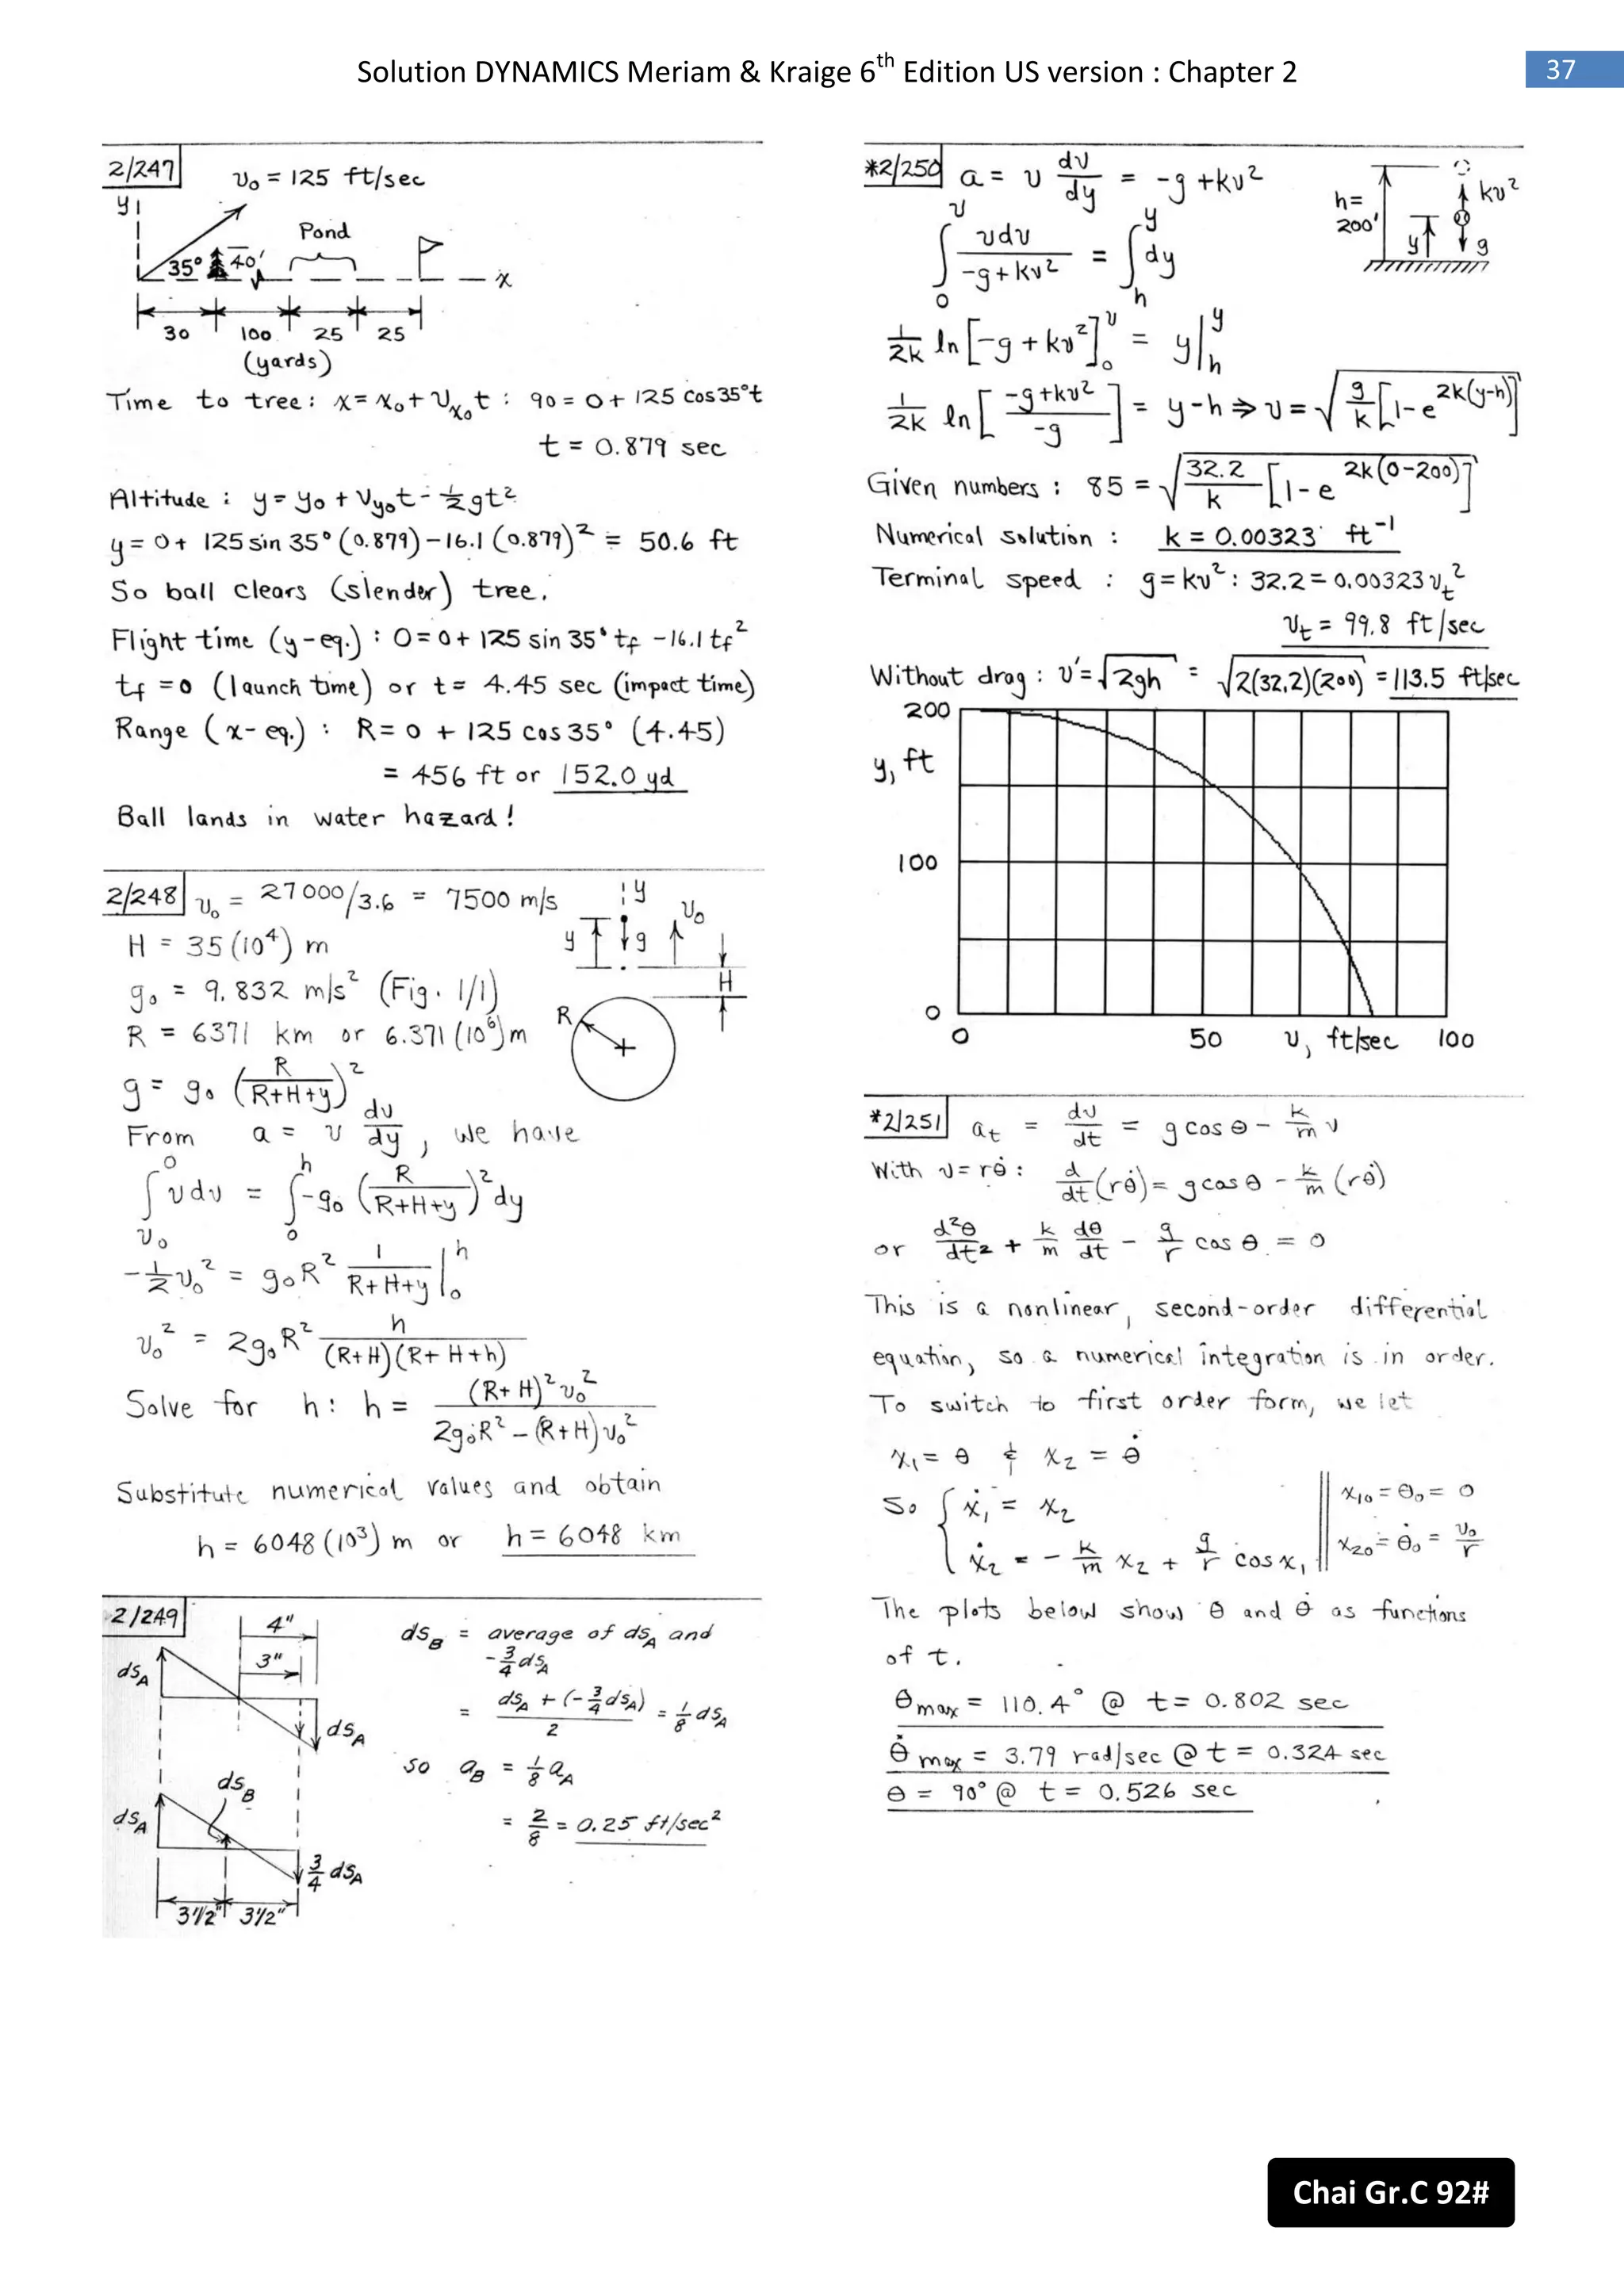 Solution DYNAMICS Meriam & Kraige 6th Edition US version : Chapter 2
37
2/247
v₀ = 125 ft/sec
y
Pond
35°
40'
x
30 100 25 25
(yards)
Time to tree: x = x₀ + v_x₀ t : 90 = 0 + 125 cos 35° t
t = 0.879 sec
Altitude : y = y₀ + v_y₀ t - ½gt²
y = 0 + 125 sin 35° (0.879) - 16.1 (0.879)² = 50.6 ft
So ball clears (slender) tree.
Flight time (y-eq.) : 0 = 0 + 125 sin 35° t_f - 16.1 t_f²
t_f = 0 (launch time) or t = 4.45 sec (impact time)
Range (x-eq.) : R = 0 + 125 cos 35° (4.45)
= 456 ft or 152.0 yd
Ball lands in water hazard!
2/248
v₀ = 27000/3.6 = 7500 m/s
H = 35(10⁴) m
g₀ = 9.832 m/s² (Fig. 1/1)
R = 6371 km or 6.371(10⁶) m
y
y
g
v₀
H
R
g = g₀ (R/(R+H+y))²
From a = v dv/dy, we have
∫_{v₀}^{0} v dv = ∫_{0}^{h} -g₀ (R/(R+H+y))² dy
-½ v₀² = g₀R² 1/(R+H+y) |₀^h
v₀² = 2g₀R² h/((R+H)(R+H+h))
Solve for h: h = (R+H)² v₀² / (2g₀R² - (R+H)v₀²)
Substitute numerical values and obtain
h = 6048(10³) m or h = 6048 km
2/249
4"
3"
ds_A
ds_A
ds_B
ds_A
¾ ds_A
3 1/2" 3 1/2"
ds_B = average of ds_A and
-¾ ds_A
= (ds_A + (-¾ ds_A))/2 = ⅛ ds_A
so a_B = ⅛ a_A
= 2/8 = 0.25 ft/sec²
*2/250
a = v dv/dy = -g + kv²
h =
200'
y
kv²
g
∫_{0}^{v} v dv/(-g + kv²) = ∫_{h}^{y} dy
1/2k ln[-g + kv²]₀^v = y|_h^y
1/2k ln[(-g + kv²)/-g] = y-h ⇒ v = √(g/k [1-e^{2k(y-h)}])
Given numbers : 85 = √(32.2/k [1-e^{2k(0-200)}])
Numerical solution : k = 0.00323 ft⁻¹
Terminal speed : g = kv² : 32.2 = 0.00323 v_t²
v_t = 99.8 ft/sec
Without drag : v' = √(2gh) = √(2(32.2)(200)) = 113.5 ft/sec
200
y, ft
100
0
0 50 v, ft/sec 100
*2/251
a_t = dv/dt = g cos θ - k/m v
With v = rθ̇ : d/dt (rθ̇) = g cos θ - k/m (rθ̇)
or d²θ/dt² + k/m dθ/dt - g/r cos θ = 0
This is a nonlinear, second-order differential
equation, so a numerical integration is in order.
To switch to first order form, we let
x₁ = θ & x₂ = θ̇
So { ẋ₁ = x₂
ẋ₂ = - k/m x₂ + g/r cos x₁
x₁₀ = θ₀ = 0
x₂₀ = θ̇₀ = v₀/r
The plots below show θ and θ̇ as functions
of t.
θ_max = 110.4° @ t = 0.802 sec
θ̇_max = 3.79 rad/sec @ t = 0.324 sec
θ = 90° @ t = 0.526 sec
Chai Gr.C 92#